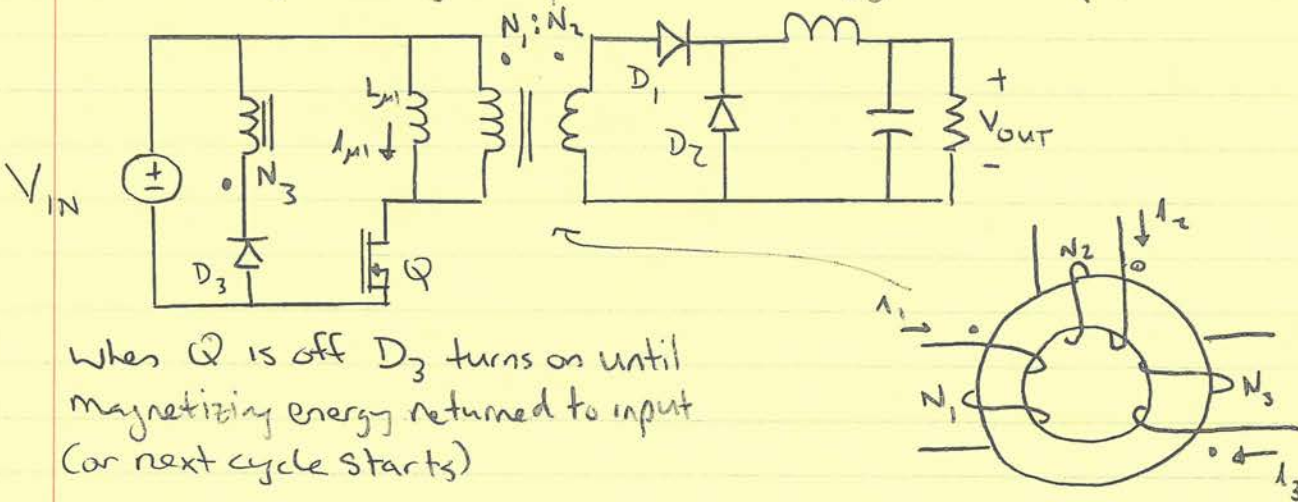 N₁:N₂
D₁
L_μ1
i_μ1
N₃
D₂
+
V_OUT
-
V_IN
+
-
D₃
Q
i₂
N₂
i₁
N₁
N₃
i₃
When Q is off D₃ turns on until
magnetizing energy returned to input
(or next cycle starts)